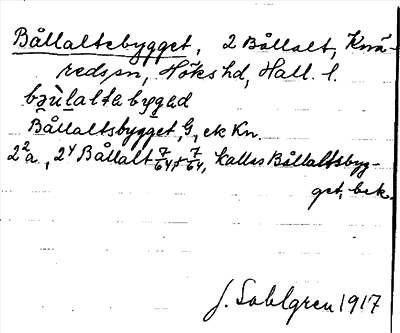 Bållaltsbygget, 2 Bållalt, Knä-
reds sn, Höks hd, Hall. l.
Bållaltsbygget, G, ek Kn.
2²a, 2⁴ Bållalt 7/64 + 7/64, kallas Bållaltsbyg-
get, bek.
J. Sahlgren 1917